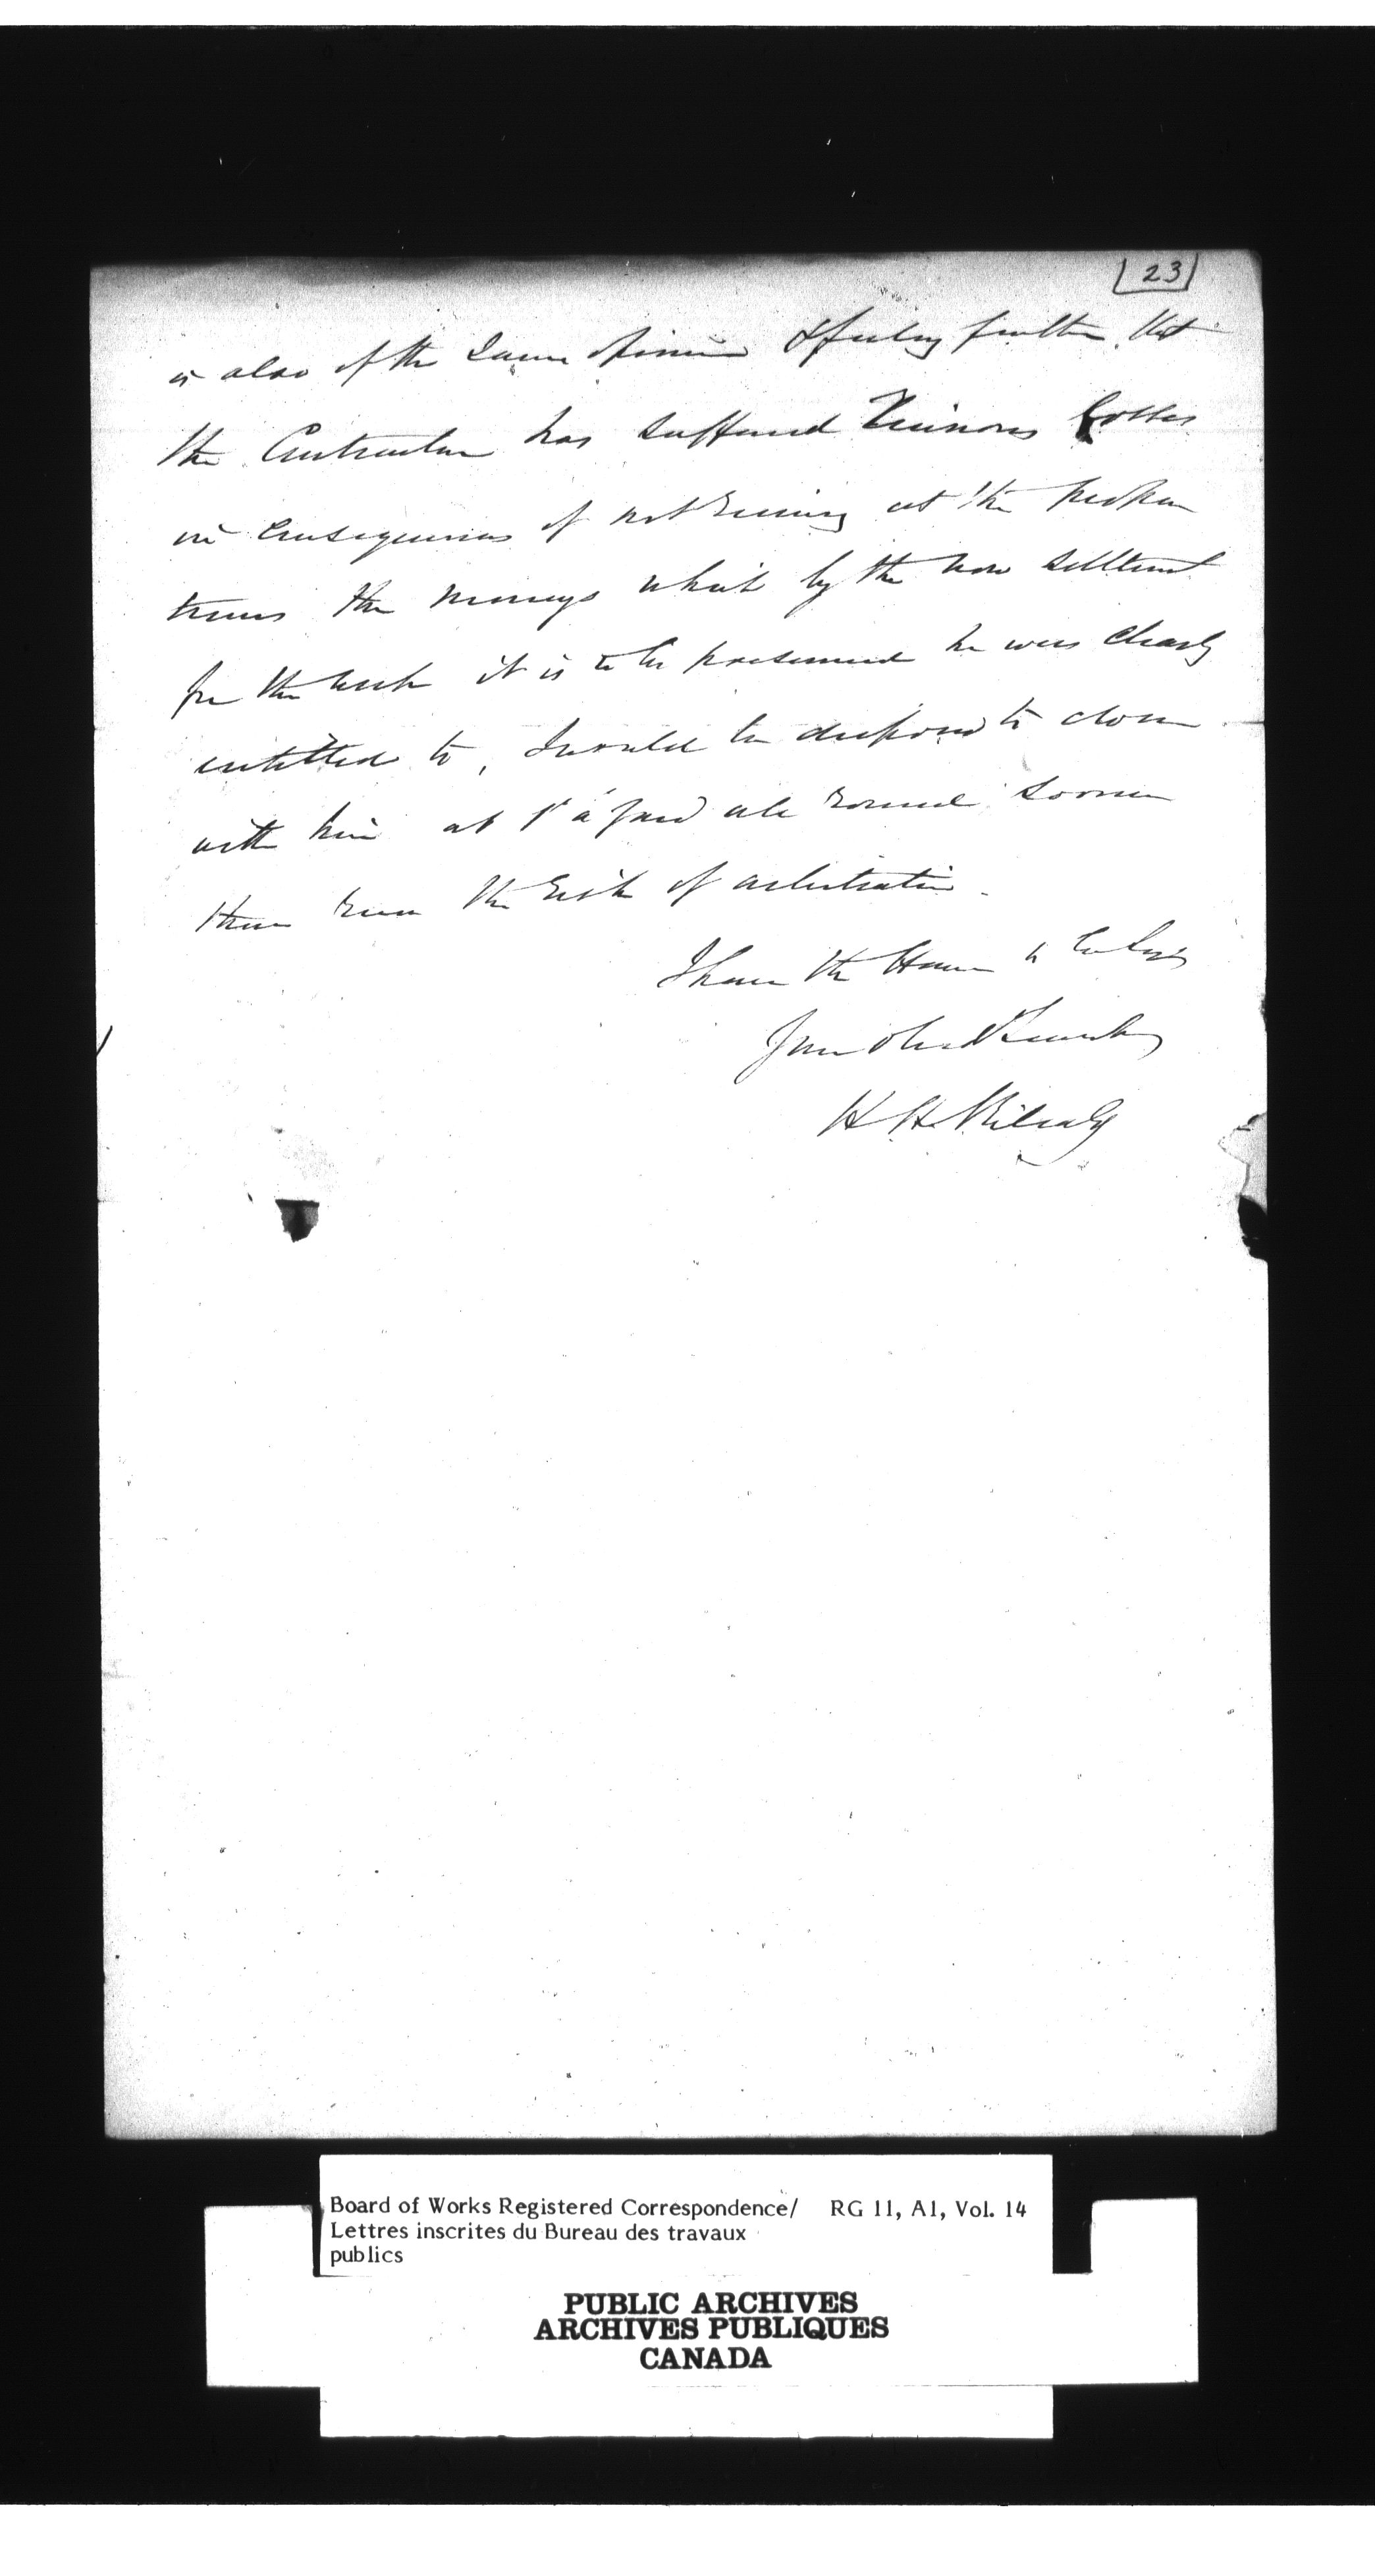 23
is also of the same opinion & feeling further that
the Contractor has suffered Ruinous Losses
in consequence of not receiving at the proper
times the moneys which by the now settlement
for the work it is to be presumed he was clearly
entitled to, I would be disposed to close
with him at a yard all round sooner
than run the risk of arbitration.
I have the Honor to be Sir
Your obed Servt
H H Killaly
Board of Works Registered Correspondence/ RG 11, A1, Vol. 14
Lettres inscrites du Bureau des travaux
publics
PUBLIC ARCHIVES
ARCHIVES PUBLIQUES
CANADA